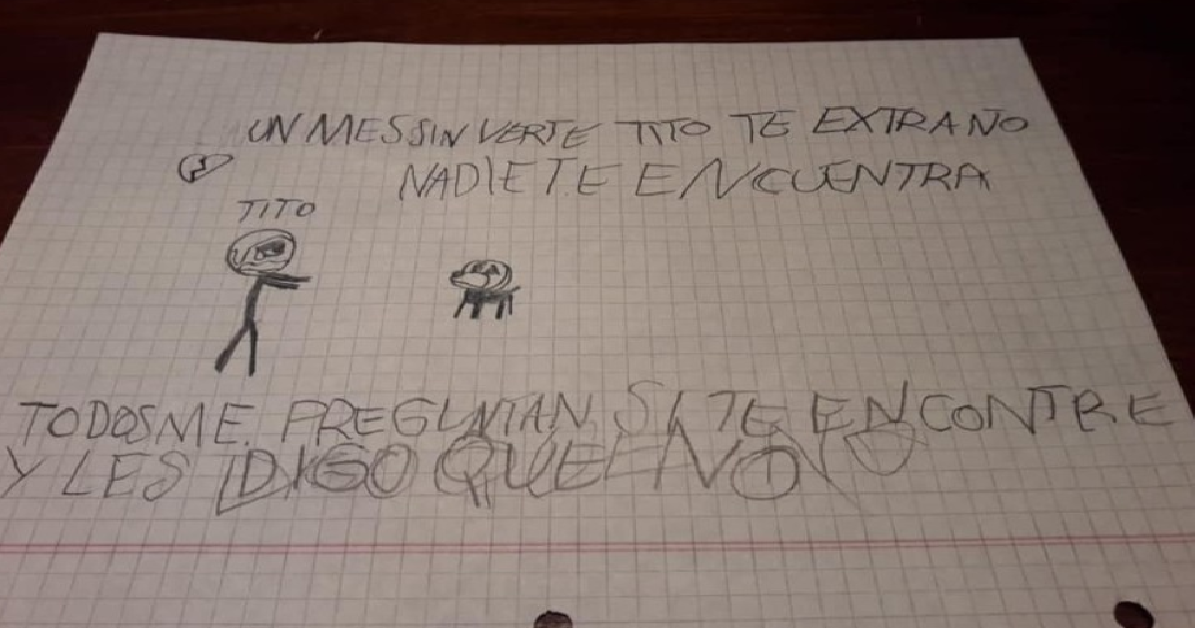 UN MES SIN VERTE TITO TE EXTRAÑO
NADIE TE ENCUENTRA
TITO
TODOS ME PREGUNTAN SI TE ENCONTRE
Y LES DIGO QUE NO